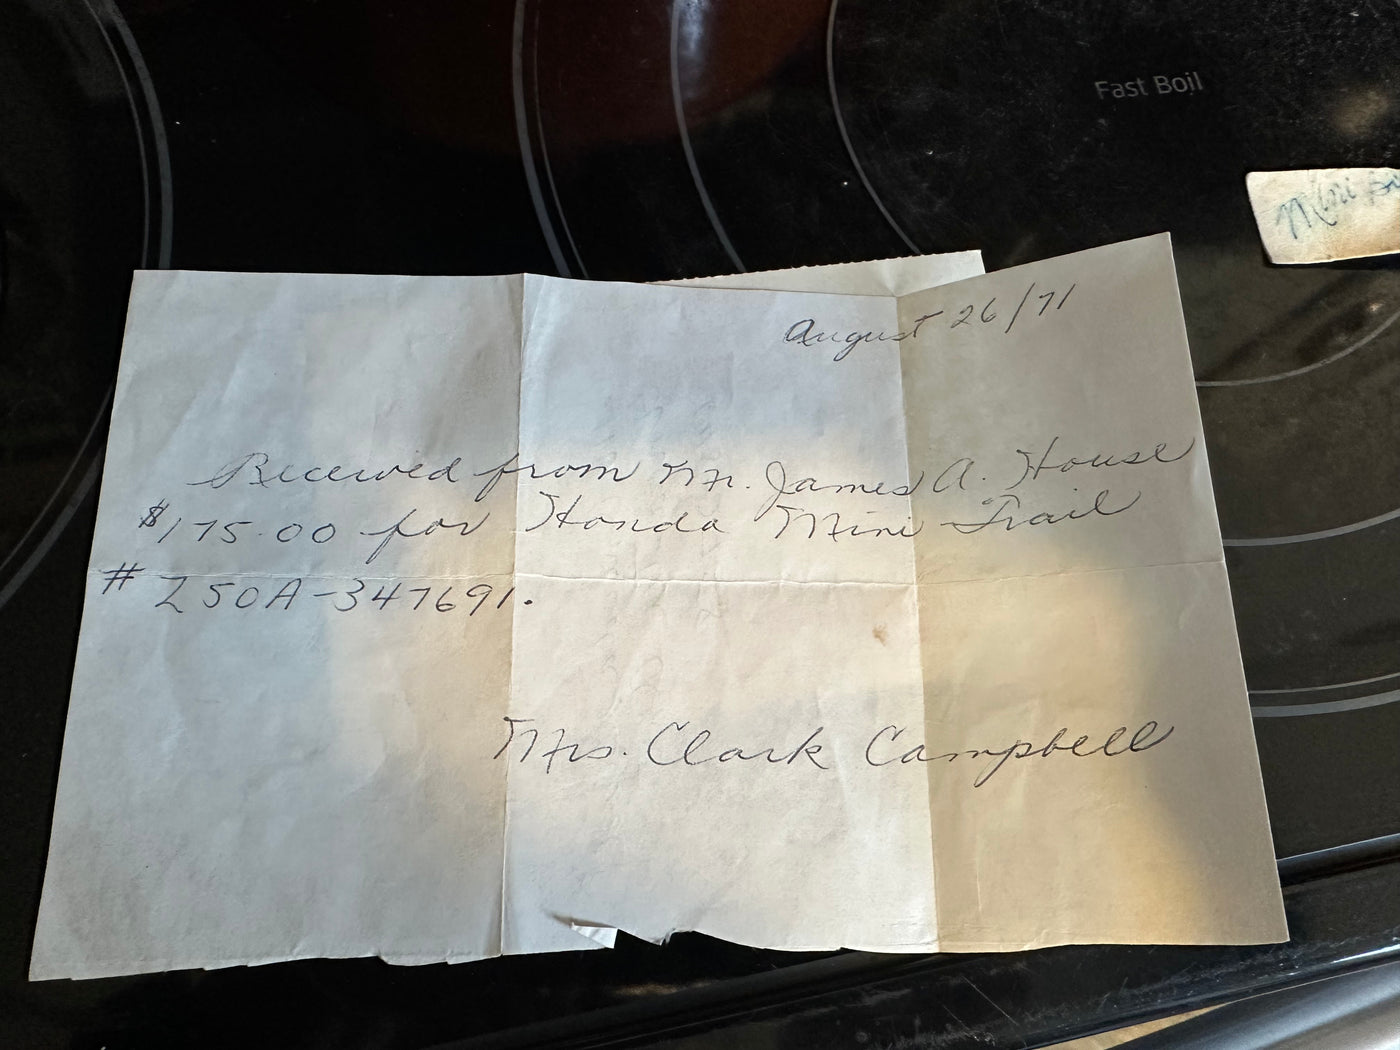 Fast Boil
Mini
August 26/71
Received from Mr. James A. House
$175.00 for Honda Mini Trail
# Z50A-347691.
Mrs. Clark Campbell